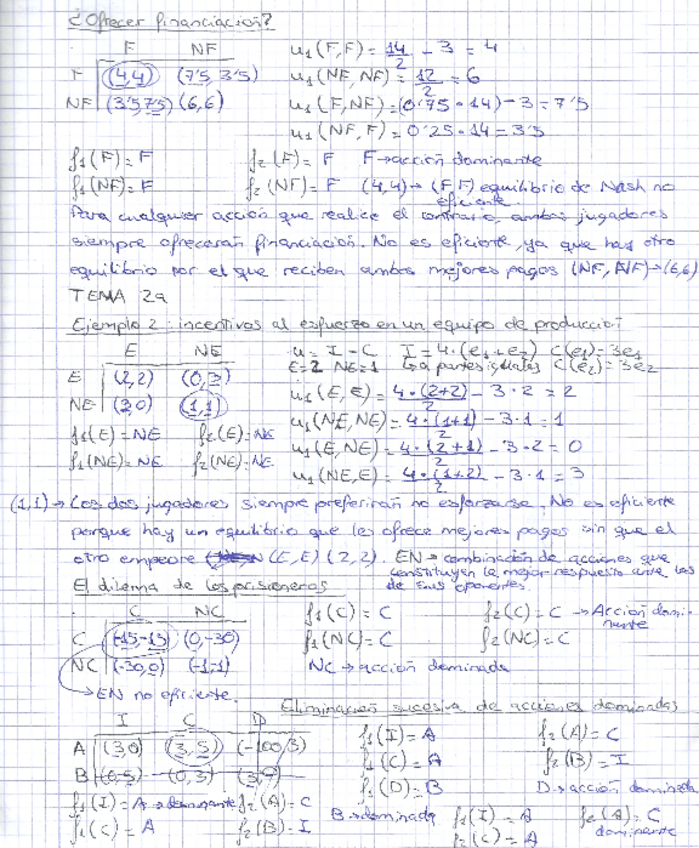 ¿Ofrecer financiación?
F NF
F (4,4) (7'5, 3'5)
NF (3'5, 7'5) (6,6)
u1(F,F) = 14/2 - 3 = 4
u1(NF,NF) = 12/2 = 6
u1(F,NF) = (0'75 · 14) - 3 = 7'5
u1(NF,F) = 0'25 · 14 = 3'5
f1(F) = F f2(F) = F F → acción dominante
f1(NF) = F f2(NF) = F (4,4) → (F,F) equilibrio de Nash no eficiente.
Para cualquier acción que realice el contrario, ambos jugadores
siempre ofrecerán financiación. No es eficiente, ya que hay otro
equilibrio por el que reciben ambos mejores pagos (NF, NF) → (6,6)
TEMA 2a
Ejemplo 2: incentivos al esfuerzo en un equipo de producción
E NE
E (2,2) (0,3)
NE (3,0) (1,1)
u = I - C I = 4·(e1+e2) C(e1) = 3e1
E=2 NE=1 a partes iguales C(e2) = 3e2
u1(E,E) = 4·(2+2)/2 - 3·2 = 2
u1(NE,NE) = 4·(1+1)/2 - 3·1 = 1
u1(E,NE) = 4·(2+1)/2 - 3·2 = 0
u1(NE,E) = 4·(1+2)/2 - 3·1 = 3
f1(E) = NE f2(E) = NE
f1(NE) = NE f2(NE) = NE
(1,1) → Los dos jugadores siempre preferirán no esforzarse. No es eficiente
porque hay un equilibrio que les ofrece mejores pagos sin que el
otro empeore (E,E) (2,2). EN → combinación de acciones que
constituyen la mejor respuesta ante las
de sus oponentes.
El dilema de los prisioneros
C NC
C (-15,-15) (0,-30)
NC (-30,0) (-1,-1)
→ EN no eficiente.
f1(C) = C f2(C) = C → Acción dominante
f1(NC) = C f2(NC) = C
NC → acción dominada
Eliminación sucesiva de acciones dominadas
I C D
A (3,0) (3,5) (-100,3)
B (0,5) (0,3) (3,
f1(I) = A f2(A) = C
f1(C) = A f2(B) = I
f1(D) = B D → acción dominada
f1(I) = A → dominante f2(A) = C
f1(C) = A f2(B) = I
B → dominada f1(I) = A f2(A) = C
f1(C) = A dominante